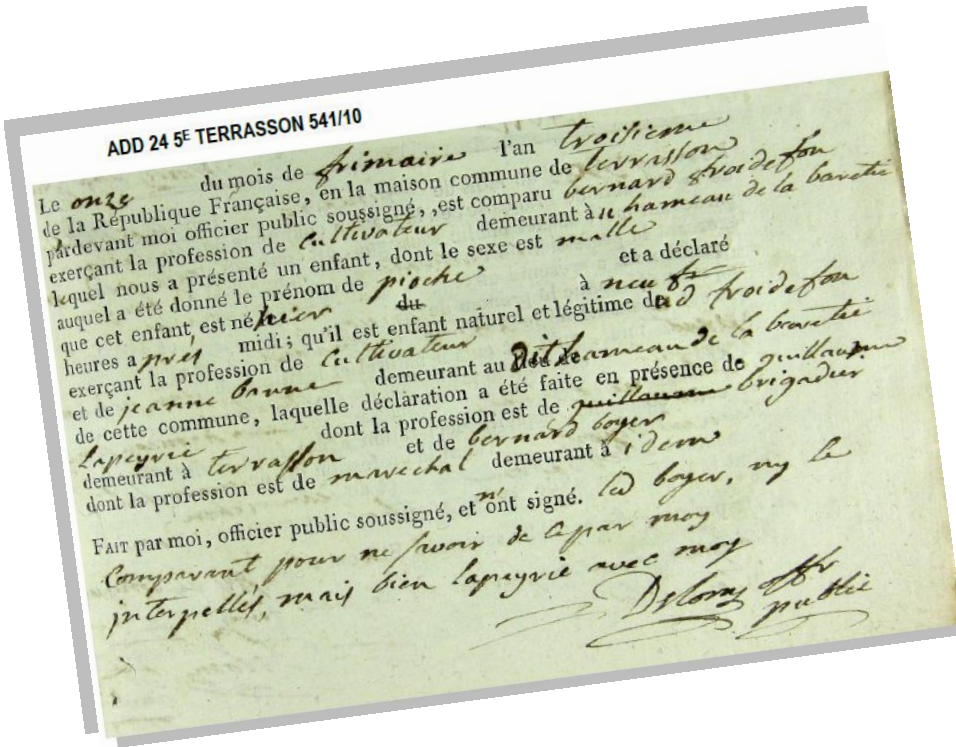 ADD 24 5E TERRASSON 541/10
Le onze du mois de frimaire l'an troisieme
de la République Française, en la maison commune de terrasson
pardevant moi officier public soussigné, est comparu bernard froidefon
exerçant la profession de Cultivateur demeurant à u hameau de la baretie
lequel nous a présenté un enfant, dont le sexe est malle
auquel a été donné le prénom de pioche et a déclaré
que cet enfant est né hier du à neu
heures a près midi; qu'il est enfant naturel et légitime dud froidefon
exerçant la profession de Cultivateur demeurant au dit hameau de la baretie
et de jeanne banne
de cette commune, laquelle déclaration a été faite en présence de guillaume
Lapeyrie dont la profession est de guillaume brigadier
demeurant à terrasson et de bernard boyer
dont la profession est de marechal demeurant à idem
FAIT par moi, officier public soussigné, et n'ont signé. led boyer, ny le
Comparant pour ne savoir de ce par moy
interpellés, mais bien Lapeyrie avec moy
Delom offr
public